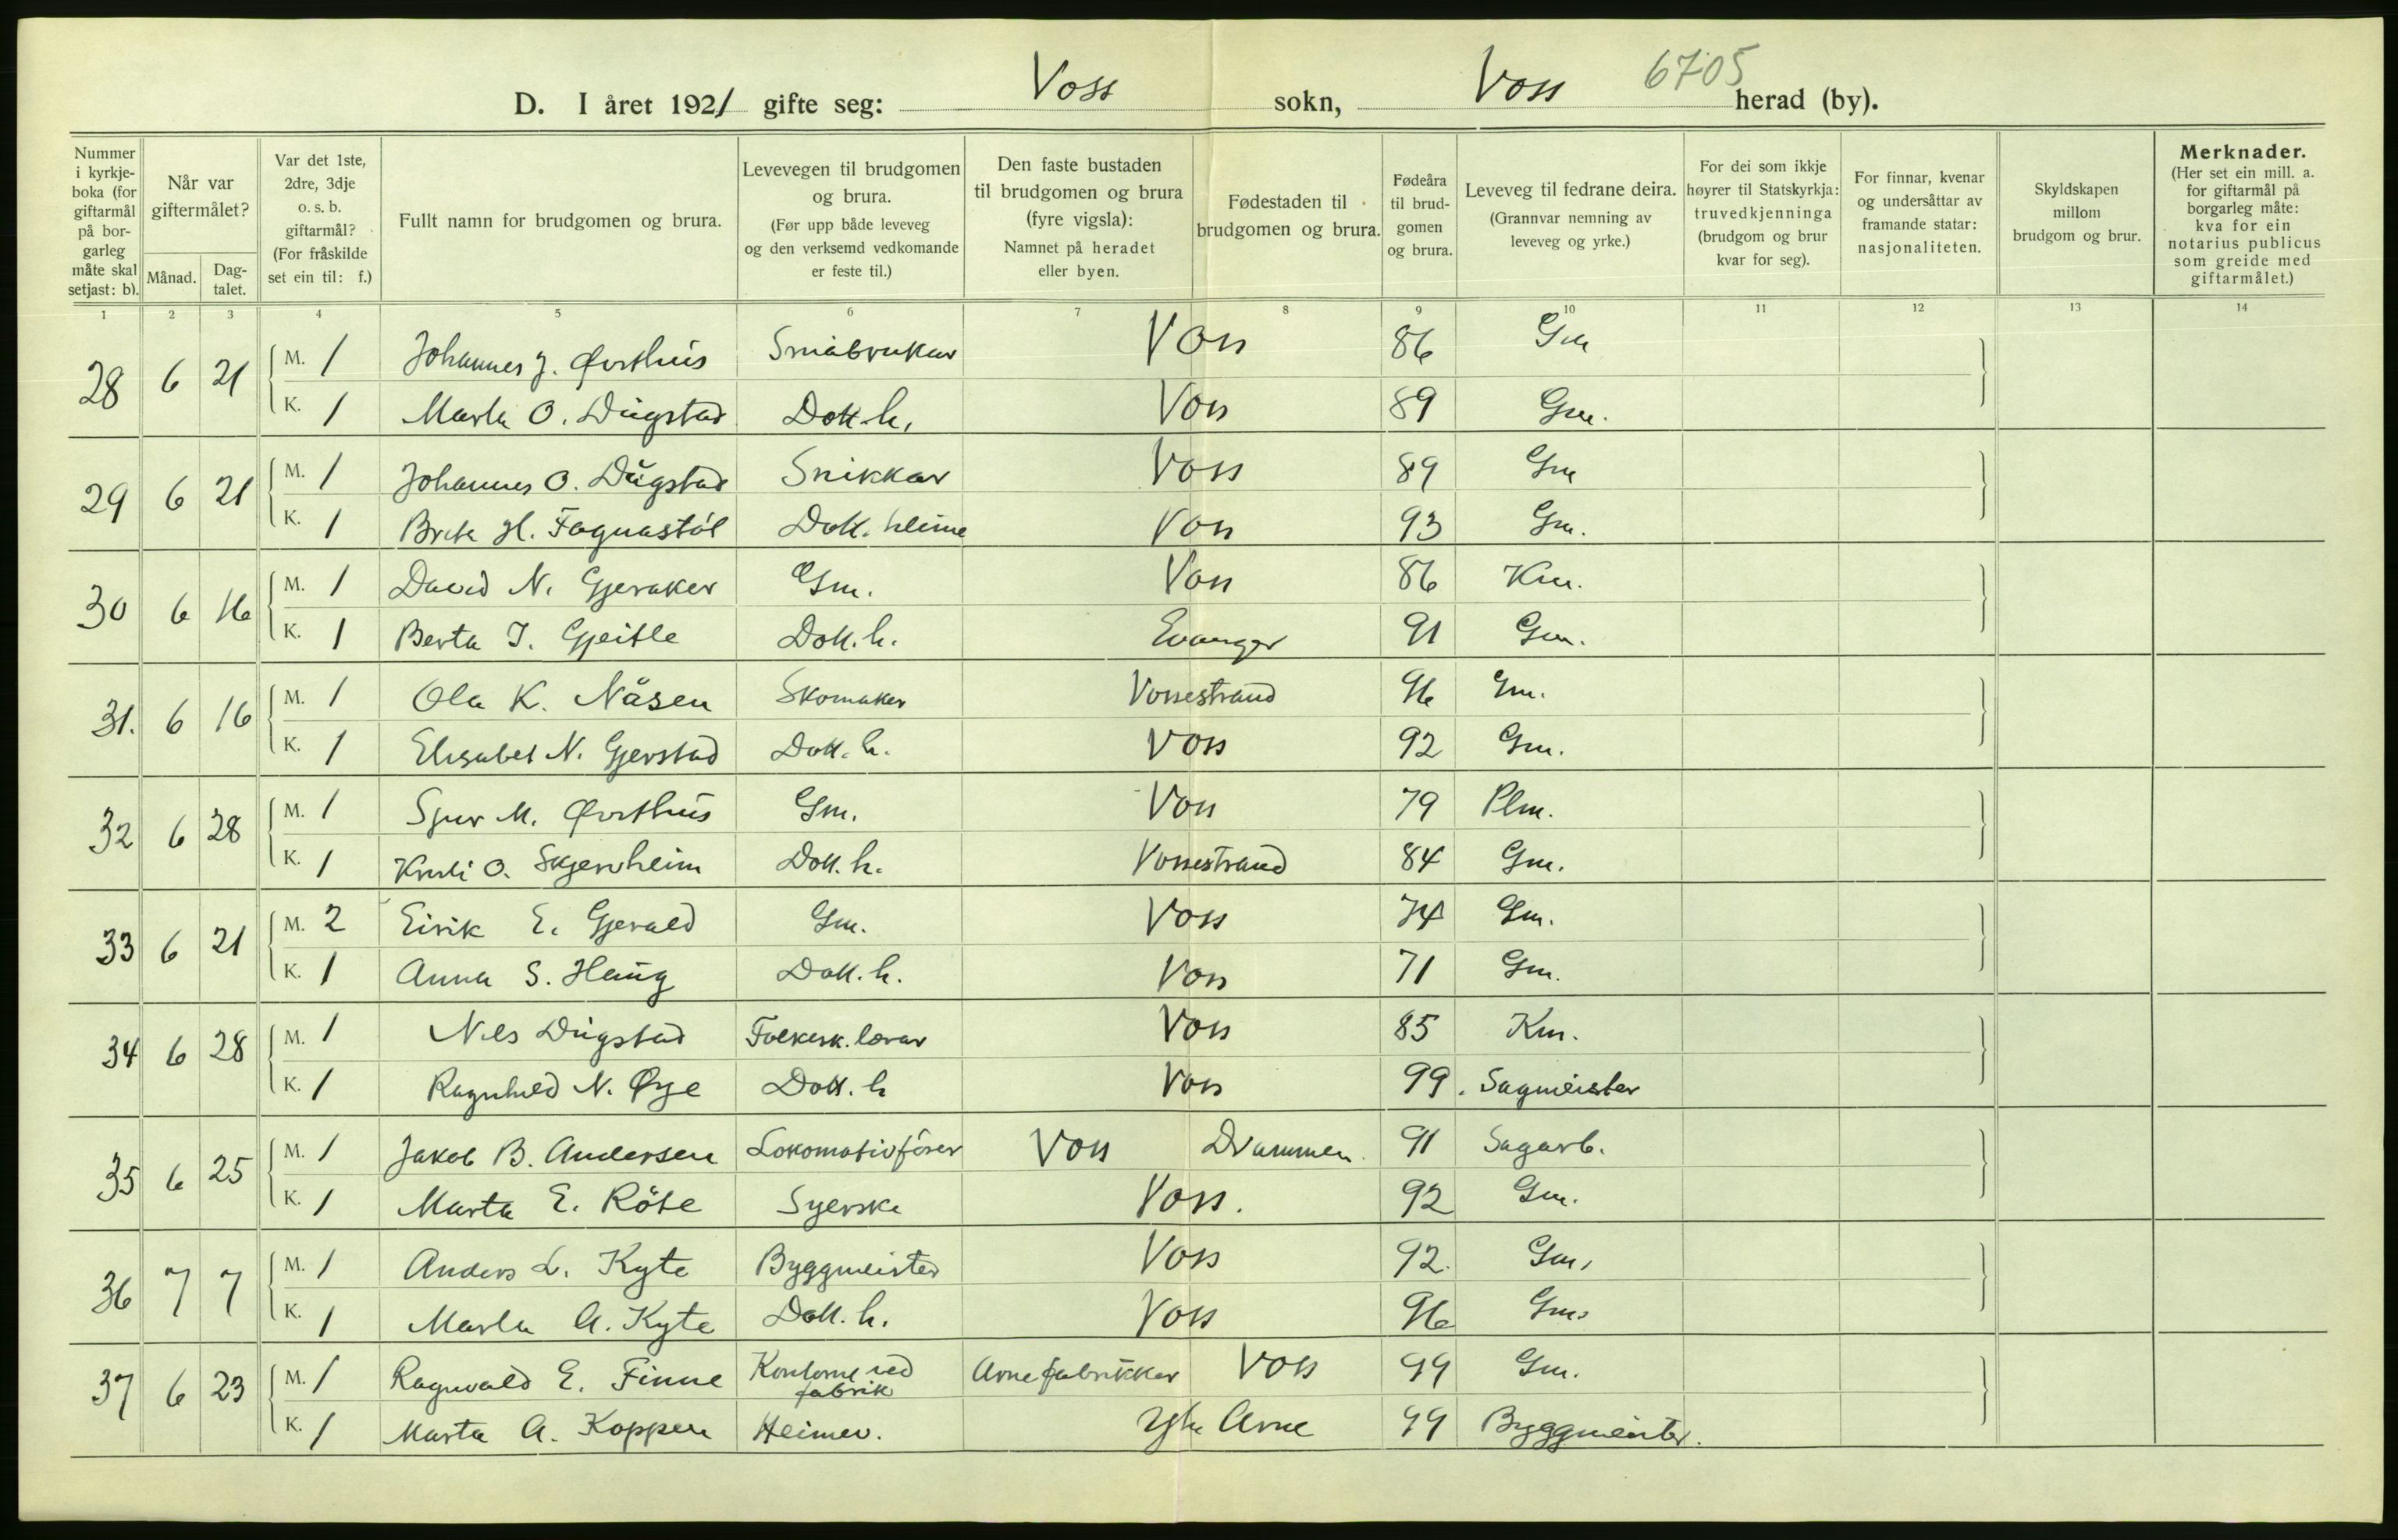 6705
D. I året 1921 gifte seg: Voss sokn, Voss herad (by).
Nummer i kyrkje-boka (for giftarmål på bor-garleg måte skal setjast: b).
Når var giftermålet?
Månad.
Dag-talet.
Var det 1ste, 2dre, 3dje o. s. b. giftarmål? (For fråskilde set ein til: f.)
Fullt namn for brudgomen og brura.
Levevegen til brudgomen og brura. (Før upp både leveveg og den verksemd vedkomande er feste til.)
Den faste bustaden til brudgomen og brura (fyre vigsla): Namnet på heradet eller byen.
Fødestaden til brudgomen og brura.
Fødeåra til brud-gomen og brura.
Leveveg til fedrane deira. (Grannvar nemning av leveveg og yrke.)
For dei som ikkje høyrer til Statskyrkja: truvedkjenninga (brudgom og brur kvar for seg).
For finnar, kvenar og undersåttar av framande statar: nasjonaliteten.
Skyldskapen millom brudgom og brur.
Merknader. (Her set ein mill. a. for giftarmål på borgarleg måte: kva for ein notarius publicus som greide med giftarmålet.)
1 2 3 4 5 6 7 8 9 10 11 12 13 14
28 6 21 M. 1 Johannes J. Øvsthus Småbrukar Voss 86 Gm
K. 1 Marta O. Dugstad Dott. h. Voss 89 Gm.
29 6 21 M. 1 Johannes O. Dugstad Snikkar Voss 89 Gm
K. 1 Brita H. Fagnastøl Dott. heime Voss 93 Gm.
30 6 16 M. 1 David N. Gjeraker Gm. Voss 86 Km.
K. 1 Berta I. Gjeitle Dott. h. Evanger 91 Gm.
31. 6 16 M. 1 Ola K. Nåsen Skomaker Vossestrand 96 Gm.
K. 1 Elisabet N. Gjerstad Dott. h. Voss 92 Gm.
32 6 28 M. 1 Sjur M. Øvsthus Gm. Voss 79 Plm.
K. 1 O. Skjerveheim Dott. h. Vossestrand 84 Gm.
33 6 21 M. 2 Eirik E. Gjerald Gm. Voss 74 Gm.
K. 1 Anna S. Haug Dott. h. Voss 71 Gm.
34 6 28 M. 1 Nils Dugstad Folkesk. lærar Voss 85 Km.
K. 1 Ragnhild N. Øye Dott. h Voss 99. Sagmeister
35 6 25 M. 1 Jakob B. Andersen Lokomotivförer Voss Drammen. 91 Sagarb.
K. 1 Marta E. Röte Syerske Voss. 92 Gm.
36 7 7 M. 1 Anders L. Kyte Byggmeister Voss 92. Gm.
K. 1 Marta A. Kyte Dott. h. Voss 96 Gm.
37 6 23 M. 1 Ragnvald E. Finne ved fabrik Arne fabrikker Voss 99 Gm.
K. 1 Marta A. Koppen Heimev. Yt. Arne 99 Byggmeister.